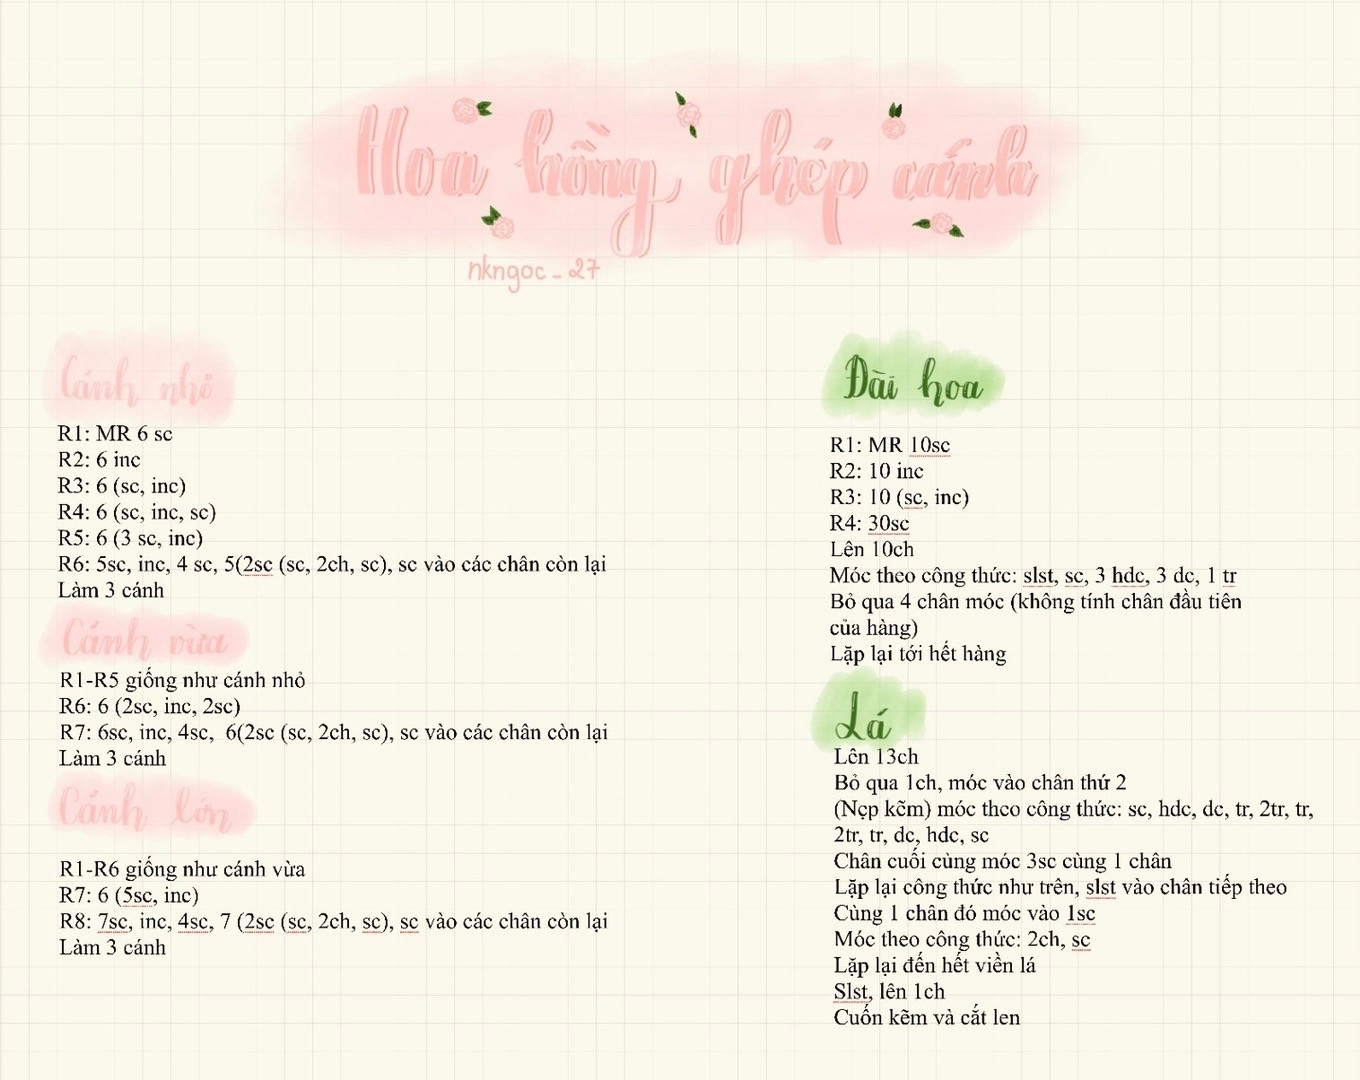 Hoa hồng ghép cánh
nkngoc_27
Cánh nhỏ
R1: MR 6 sc
R2: 6 inc
R3: 6 (sc, inc)
R4: 6 (sc, inc, sc)
R5: 6 (3 sc, inc)
R6: 5sc, inc, 4 sc, 5(2sc (sc, 2ch, sc), sc vào các chân còn lại
Làm 3 cánh
Cánh vừa
R1-R5 giống như cánh nhỏ
R6: 6 (2sc, inc, 2sc)
R7: 6sc, inc, 4sc,  6(2sc (sc, 2ch, sc), sc vào các chân còn lại
Làm 3 cánh
Cánh lớn
R1-R6 giống như cánh vừa
R7: 6 (5sc, inc)
R8: 7sc, inc, 4sc, 7 (2sc (sc, 2ch, sc), sc vào các chân còn lại
Làm 3 cánh
Đài hoa
R1: MR 10sc
R2: 10 inc
R3: 10 (sc, inc)
R4: 30sc
Lên 10ch
Móc theo công thức: slst, sc, 3 hdc, 3 dc, 1 tr
Bỏ qua 4 chân móc (không tính chân đầu tiên
của hàng)
Lặp lại tới hết hàng
Lá
Lên 13ch
Bỏ qua 1ch, móc vào chân thứ 2
(Nẹp kẽm) móc theo công thức: sc, hdc, dc, tr, 2tr, tr,
2tr, tr, dc, hdc, sc
Chân cuối cùng móc 3sc cùng 1 chân
Lặp lại công thức như trên, slst vào chân tiếp theo
Cùng 1 chân đó móc vào 1sc
Móc theo công thức: 2ch, sc
Lặp lại đến hết viền lá
Slst, lên 1ch
Cuốn kẽm và cắt len